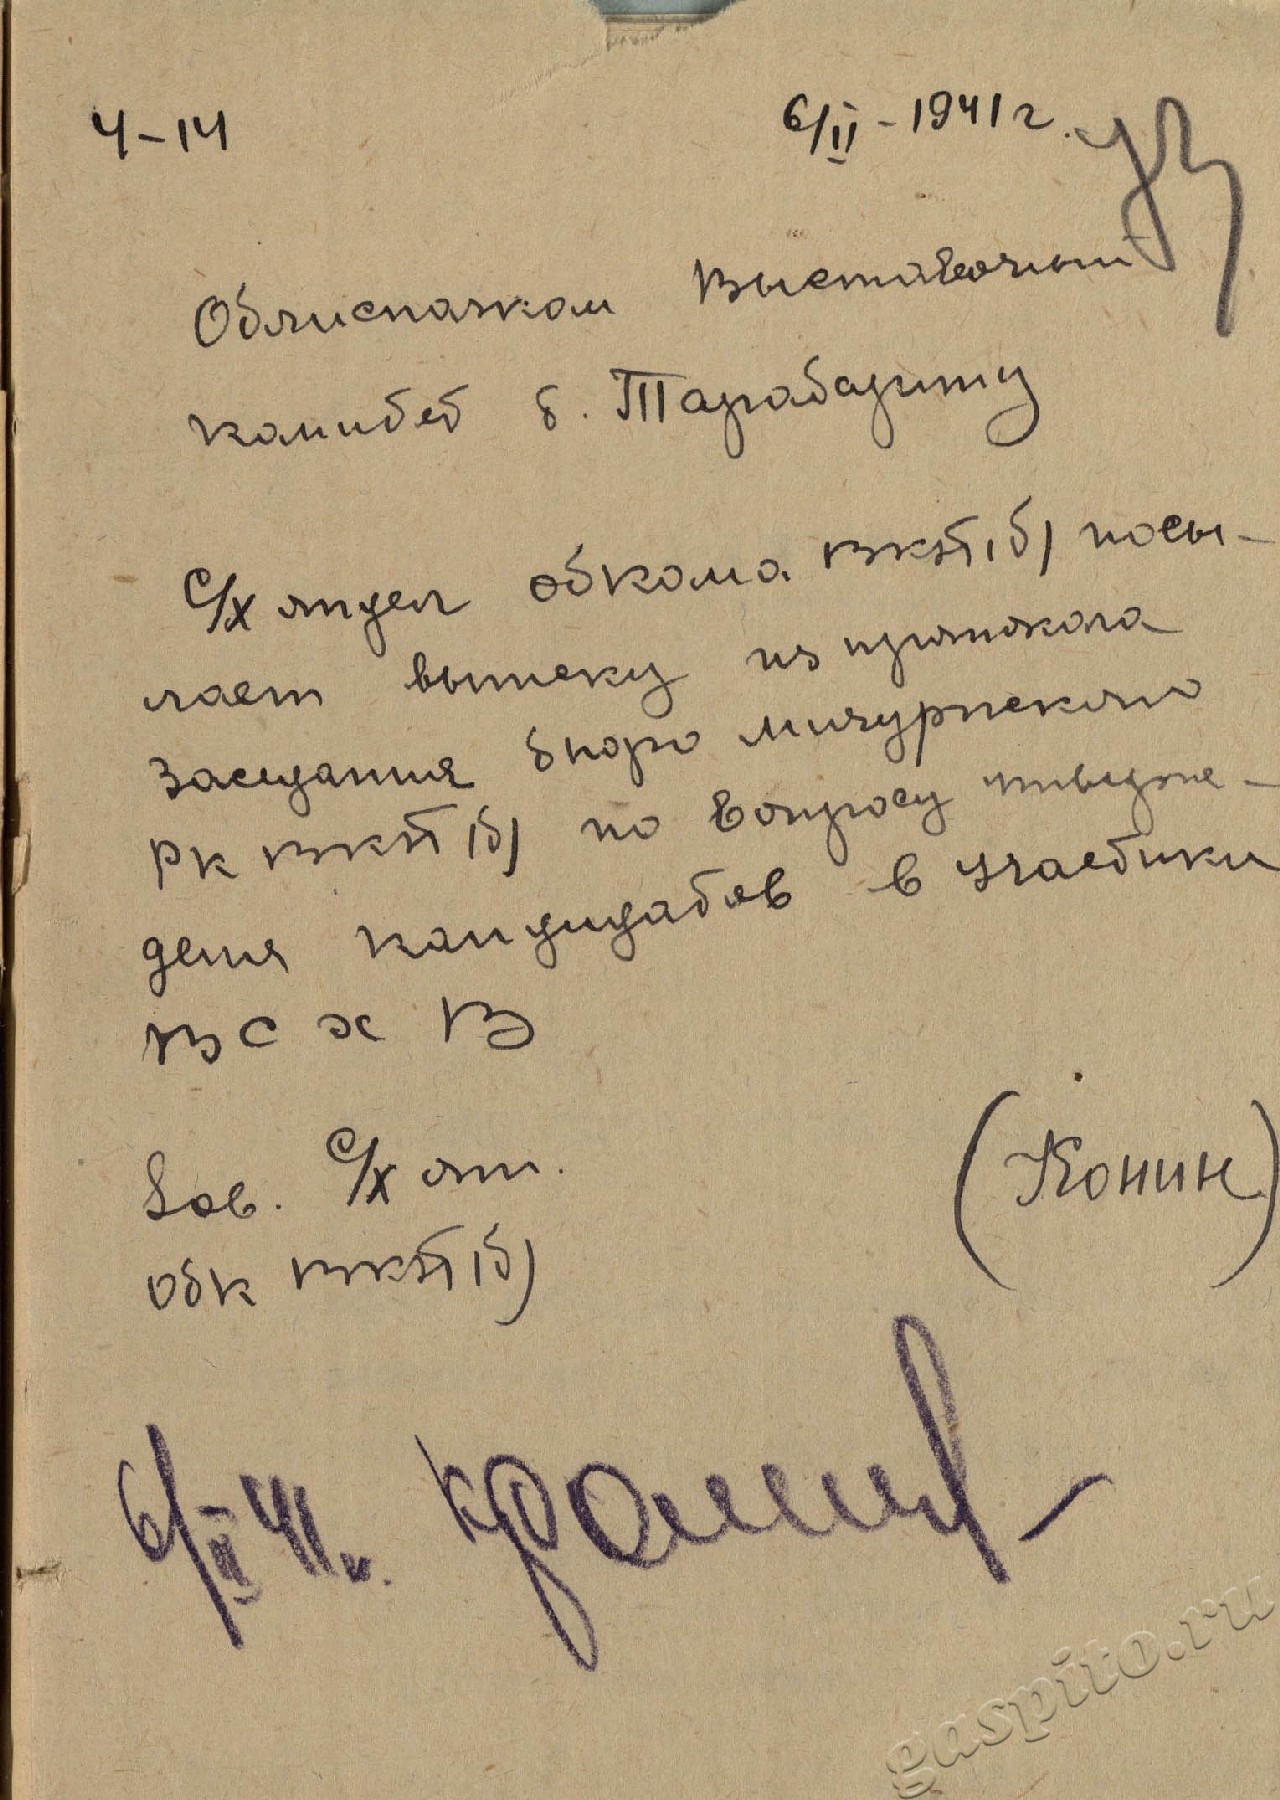 4-14
6/II - 1941 г.
Облисполком Выставочный
комитет т. Тарабарину
С/х отдел обкома ВКП(б) посы-
лает выписку из протокола
заседания бюро Мичуринского
РК ВКП(б) по вопросу утвержде-
дения кандидатов в участники
ВСХВ
Зав. с/х отд.
Обк ВКП(б)
(Конин)
6/II 41 г.
gaspito.ru